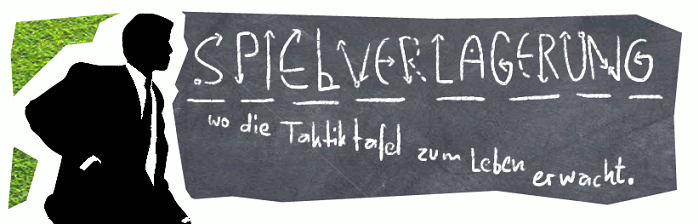 SPIELVERLAGERUNG
wo die Taktiktafel zum Leben erwacht.